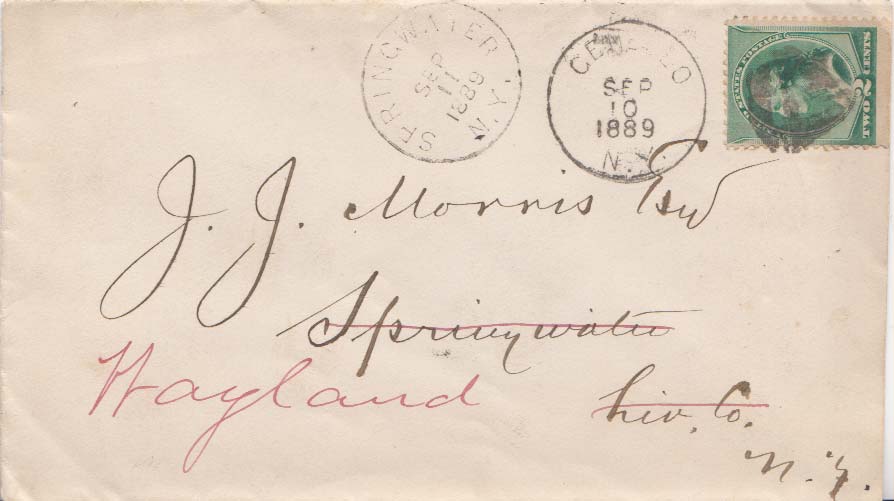 SPRINGWATER
SEP
11
1889
N.Y.
SEP
10
1889
N.Y.
U. STATES POSTAGE
TWO 2 CENTS
J. J. Morris Esq
Springwater
Wayland
Liv. Co.
N.Y.